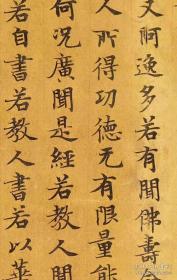 又阿逸多若有聞佛壽
人所得功德无有限量能
何況廣聞是經若教人聞
若自書若教人書若以華